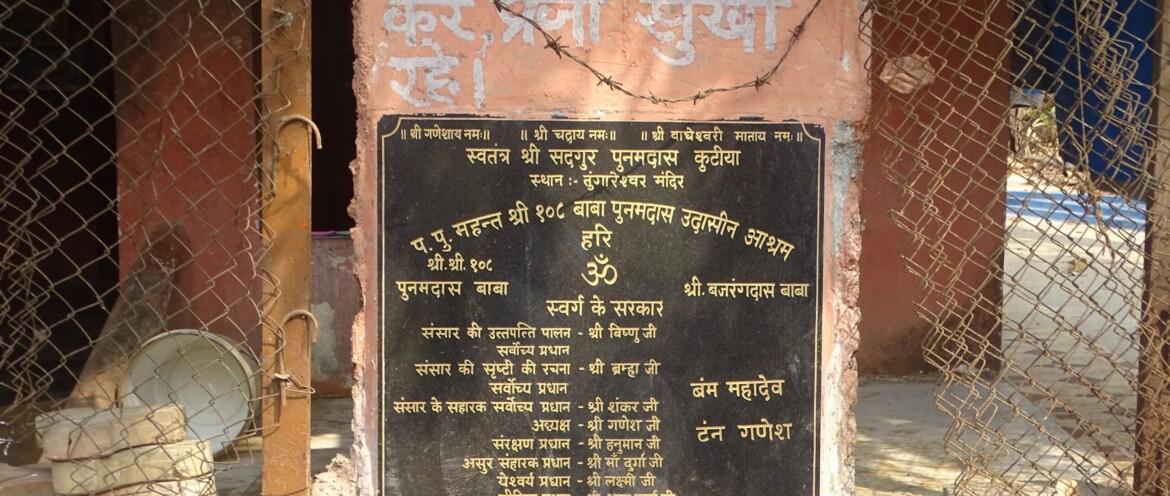 कर प्रजा सुखी
रहे।
॥ श्री गणेशाय नमः॥ ॥ श्री चद्राय नमः॥ ॥ श्री वाघेश्वरी माताय नमः॥
स्वतंत्र श्री सदगुर पुनमदास कुटीया
स्थान :- तुंगारेश्वर मंदिर
प. पु. महन्त श्री १०८ बाबा पुनमदास उदासीन आश्रम
हरि
श्री.श्री. १०८ ॐ
पुनमदास बाबा श्री. बजरंगदास बाबा
स्वर्ग के सरकार
संसार की उत्तपत्ति पालन - श्री विष्णु जी
सर्वोच्य प्रधान
संसार की सृष्टी की रचना - श्री ब्रम्हा जी
सर्वोच्य प्रधान बंम महादेव
संसार के सहारक सर्वोच्य प्रधान - श्री शंकर जी
अध्यक्ष - श्री गणेश जी टंन गणेश
संरक्षण प्रधान - श्री हनुमान जी
असुर संहारक प्रधान - श्री माँ दुर्गा जी
येश्वर्य प्रधान - श्री लक्ष्मी जी